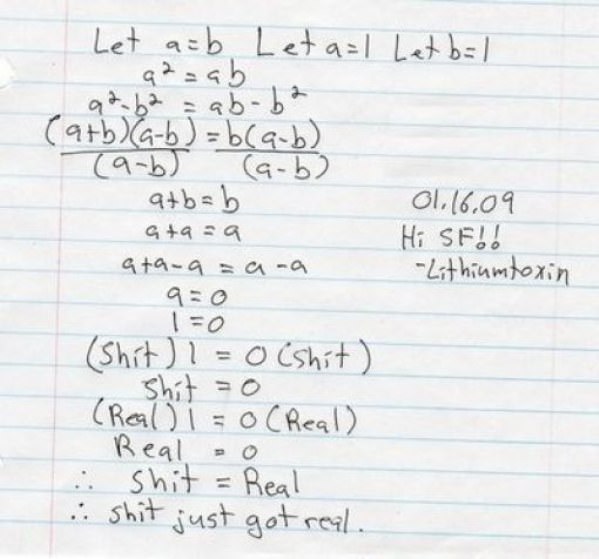 Let a=b Let a=1 Let b=1
a² = ab
a²-b² = ab - b²
(a+b)(a-b) = b(a-b)
(a-b) (a-b)
a+b = b
a+a = a
a+a-a = a-a
a=0
1=0
(Shit) 1 = 0 (shit)
Shit = 0
(Real) 1 = 0 (Real)
Real = 0
∴ Shit = Real
∴ shit just got real.
01.16.09
Hi SF!!
-Lithiumtoxin